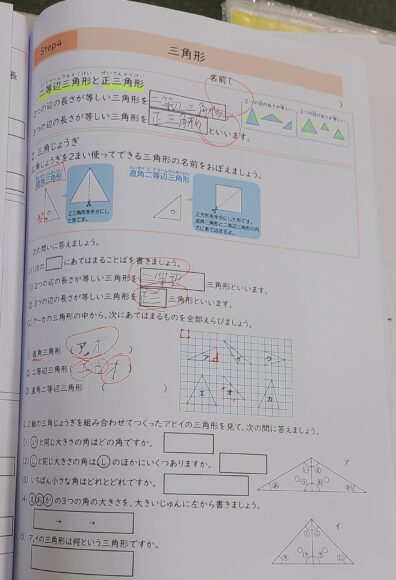 Step4
三角形
名前( )
にとうへんさんかくけい せいさんかくけい
二等辺三角形と正三角形
2つの辺の長さが等しい三角形を 二等辺三角形
3つの辺の長さが等しい三角形を 正三角形 といいます。
2つの辺の長さが等しい 3つの辺の長さが等しい
2.三角じょうぎ
三角じょうぎを2まい使ってできる三角形の名前をおぼえましょう。
直角三角形
正三角形を半分にした形です。
直角二等辺三角形
正方形を半分にした形です。
直角三角形と二等辺三角形の両方にあてはまるよ。
次の問いに答えましょう。
(1)次の にあてはまることばを書きましょう。
① 2つの辺の長さが等しい三角形を 二等辺 三角形といいます。
② 3つの辺の長さが等しい三角形を 正三 三角形といいます。
(2)ア〜カの三角形の中から、次にあてはまるものを全部えらびましょう。
① 直角三角形 ( ア、オ )
② 二等辺三角形 ( エ オ )
③ 直角二等辺三角形 ( )
ア イ ウ
エ オ カ
2.2組の三角じょうぎを組み合わせてつくったアとイの三角形を見て、次の問に答えましょう。
(1) いと同じ大きさの角はどの角ですか。
(2) しと同じ大きさの角は しのほかにいくつありますか。
(3) いちばん小さな角はどれとどれですか。
(4) の3つの角の大きさを、大きいじゅんに左から書きましょう。
→ →
(5) ア,イの三角形は何という三角形ですか。
ア
イ